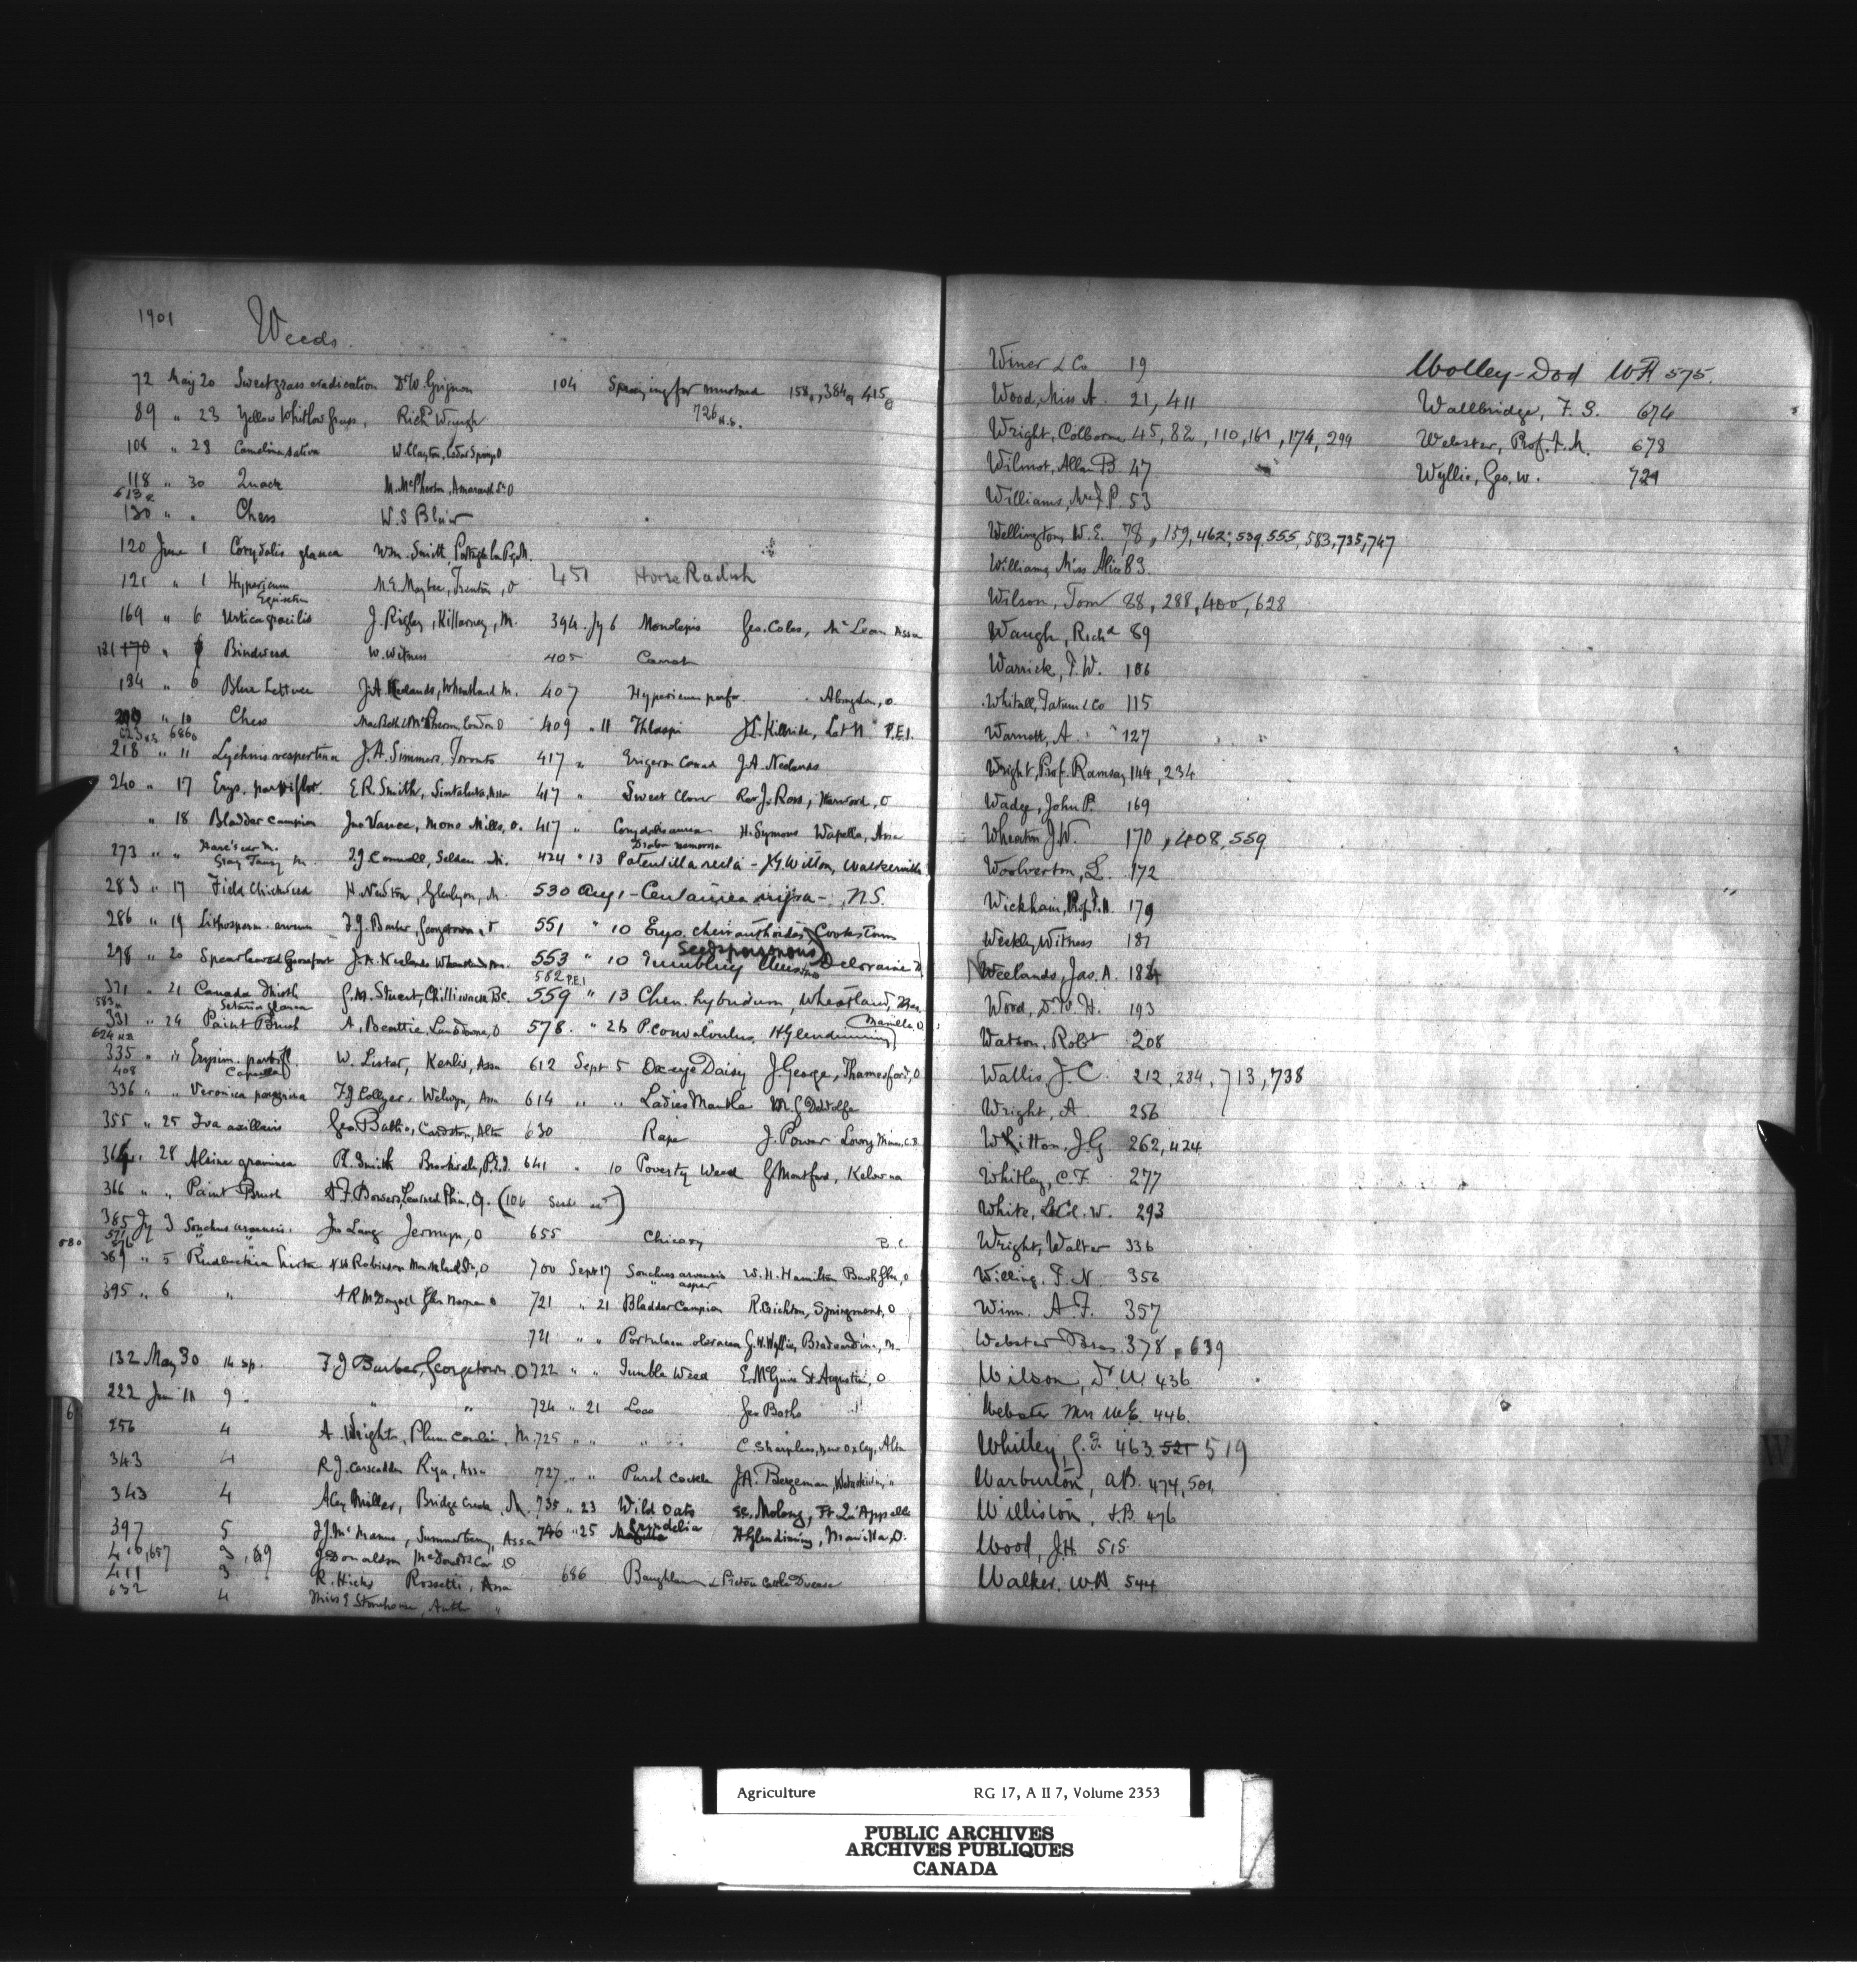 1901
Weeds.
72 May 20 Sweetgrass eradication Dr W Grignon
89 " 23 Yellow Whitlow Grass, Richd Waugh
108 " 28 Camelina sativa W Clayton, Cedar Springs O
118 " 30 Quack M. McPherson, Amaranth Stn O
613
130 " " Chess W.S Blair
120 June 1 Corydalis glauca Wm. Smith, Portage la P, M.
121 " 1 Hypericum N.E Maybee, Trenton, O
Equisetum
169 " 6 Urtica gracilis J. Rigby, Killarney, M.
181 170 " Bindweed W. Witness
184 " 6 Blue Lettuce J.A Neelands, Wheatland M.
" 10 Chess MacBeth & McPherson London O
686
218 " 11 Lychnis vespertina J.A. Simmers, Toronto
240 " 17 Erys. parviflor. E.R. Smith, Sintaluta, Assa
" 18 Bladder Campion Jno Vance, Mono Mills, O.
Hare's ear M.
273 " " Gray Tansy M. T.J Connell, Selden M.
283 " 17 Field Chickweed H. Newton, Glenlyon, M.
286 " 19 Lithosperm. arvense F.J. Barber, Georgetown, O
298 " 20 Spear leaved Goosefoot J.A. Neelands Wheatland Mn.
321 " 21 Canada Thistle G.M. Stuart, Chilliwack B.C.
583 Setaria glauca
331 " 24 Paint Brush A. Beattie, Lansdowne, O
624 N.B.
335 " " Erysim. parvifl W. Lister, Kenlis, Assa
408 Capsella
336 " " Veronica peregrina F.J Collyer, Welwyn, Assa
355 " 25 Iva axillaris Geo. Batho, Cardston, Alta
364 " 28 Alsine graminea R. Smith Brookvale, P.E.I.
366 " " Paint Brush A.F. Bowers, Learned Plain, Q. (104 Seed )
385 Jy 3 Sonchus arvensis. Jno Lang Jermyn, O
571
580 576
389 " 5 Rudbeckia hirta N.W Robinson Monkland Stn, O
395 " 6 " A R McDougall Glen Norman O
132 May 30 14 sp. F.J Barber, Georgetown, O
222 Jun 11 9. " "
256 4 A. Wright, Plum Coulee, M.
343 4 R.J. Carscadden Ryan, Assa
343 4 Alex Miller, Bridge Creek, M.
397 5 J.J. McManus, Summerberry, Assa
410, 657 3, 69 J Donaldson McDonalds Cor O
411 3 R. Hicks Rossetti, Assa
632 4 Miss E Stonehouse, "
104 Spraying for mustard 158, 384, 415
726 N.S.
451 Horse Radish
394 Jy 6 Monolepis Geo. Coles, McLean Assa
405 Carrot
407 Hypericum perfor. Abingdon, O.
409 " 11 Thlaspi J.E. Killbride, Lot 11 P.E.I.
417 " Erigeron Canad J.A. Neelands
417 " Sweet Clover Rev J. Ross, Harwood, O
417 " Corydalis aurea H. Symons Wapella, Assa
Draba nemorosa
424 " 13 Potentilla recta - J.G Witton, Walkerville
530 Aug 1 - Centaurea nigra - , N.S.
551 " 10 Erys. cheiranthoides, Cookstown
Seeds poisonous
553 " 10 Tumbling Mustard Deloraine M
582 P.E.I
559 " 13 Chen. hybridum, Wheatland, Man.
578. " 26 P. convolvulus, H Glendinning Manilla O.
612 Sept 5 Ox-eye Daisy J. George, Thamesford, O
614 " " Ladies Mantle M.G DeWolfe
630 Rape J. Power Lowry Mines, C.B.
641 " 10 Poverty Weed G Montford, Kelowna
655 Chicory B.C.
700 Sept 17 Sonchus arvensis W.H. Hamilton Bush Glen, O
" asper
721 " 21 Bladder Campion R. Crichton, Springmont, O
721 " " Portulaca oleracea G.W. Wyllie, Bradwardine, M
722 " " Tumble Weed E. McGuire St Augustin, O
724 " 21 Loco Geo Batho "
725 " " " " C. Sharples, New Oxley, Alta
727 " " Purple Cockle J.A. Bergeman, Wetaskiwin, "
735 " 23 Wild Oats Molong, Ft Qu'Appelle
746 " 25 Grindelia H Glendinning, Manilla, O.
686 Baughlan & Pictou Cattle Disease
Winer & Co 19
Wood, Miss A. 21, 411
Wright, Colborne 45, 82, 110, 161, 174, 299
Wilmot, Allan B. 47
Williams, Mr J.P. 53
Wellington, W.E. 78, 159, 462, 539, 555, 583, 735, 747
Williams, Miss Alice 83
Wilson, Tom 88, 288, 400, 628
Waugh, Richd 89
Warrick, F.W. 106
Whitall, Tatum & Co 115
Warnott, A. 127
Wright, Prof. Ramsay 144, 234
Wadge, John P. 169
Wheaton J.W. 170, 408, 559
Woolverton, L. 172
Wickham, Prof. H. 179
Weekly Witness 181
Neelands, Jas. A. 184
Wood, Dr W. H. 193
Watson, Robt 208
Wallis, J.C. 212, 284, 713, 738
Wright, A 256
Whitton, J.G. 262, 424
Whitley, C.F. 277
White, Lt Col. W. 293
Wright, Walter 336
Willing, T.N. 356
Winn. A.F. 357
Webster Bros. 378, 639
Wilson, Dr W 436
Webster Mr W.E. 446.
Whitley C.F. 463 521 519
Warburton, A.B. 474, 501,
Williston, S.B. 476
Wood, J.H. 515
Walker. W.A. 544
Wolley-Dod W A 575.
Wallbridge, F. S. 674
Webster, Prof. F. M. 678
Wyllie, Geo. W. 721
W
6
Agriculture RG 17, A II 7, Volume 2353
PUBLIC ARCHIVES
ARCHIVES PUBLIQUES
CANADA